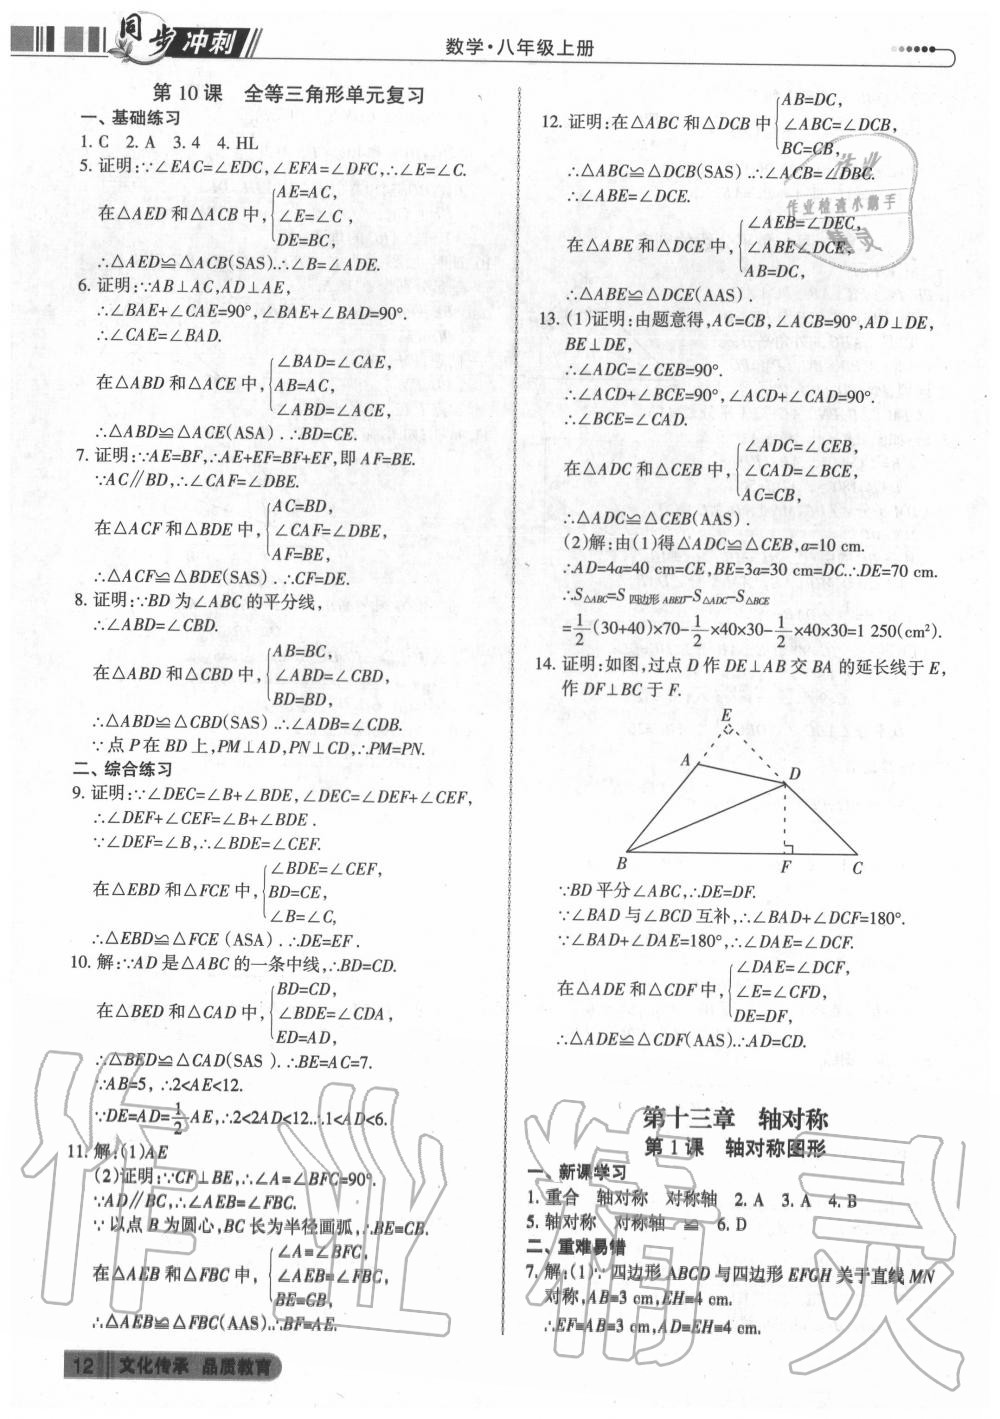 同步冲刺
数学·八年级上册
第10课 全等三角形单元复习
一、基础练习
1. C 2. A 3. 4 4. HL
5. 证明:∵∠EAC=∠EDC,∠EFA=∠DFC,∴∠E=∠C.
AE=AC,
在△AED和△ACB中,{∠E=∠C,
DE=BC,
∴△AED≌△ACB(SAS).∴∠B=∠ADE.
6. 证明:∵AB⊥AC,AD⊥AE,
∴∠BAE+∠CAE=90°,∠BAE+∠BAD=90°.
∴∠CAE=∠BAD.
∠BAD=∠CAE,
在△ABD和△ACE中,{AB=AC,
∠ABD=∠ACE,
∴△ABD≌△ACE(ASA).∴BD=CE.
7. 证明:∵AE=BF,∴AE+EF=BF+EF,即AF=BE.
∵AC∥BD,∴∠CAF=∠DBE.
AC=BD,
在△ACF和△BDE中,{∠CAF=∠DBE,
AF=BE,
∴△ACF≌△BDE(SAS).∴CF=DE.
8. 证明:∵BD为∠ABC的平分线,
∴∠ABD=∠CBD.
AB=BC,
在△ABD和△CBD中,{∠ABD=∠CBD,
BD=BD,
∴△ABD≌△CBD(SAS).∴∠ADB=∠CDB.
∵点P在BD上,PM⊥AD,PN⊥CD,∴PM=PN.
二、综合练习
9. 证明:∵∠DEC=∠B+∠BDE,∠DEC=∠DEF+∠CEF,
∴∠DEF+∠CEF=∠B+∠BDE.
∵∠DEF=∠B,∴∠BDE=∠CEF.
∠BDE=∠CEF,
在△EBD和△FCE中,{BD=CE,
∠B=∠C,
∴△EBD≌△FCE(ASA).∴DE=EF.
10. 解:∵AD是△ABC的一条中线,∴BD=CD.
BD=CD,
在△BED和△CAD中,{∠BDE=∠CDA,
ED=AD,
∴△BED≌△CAD(SAS).∴BE=AC=7.
∵AB=5,∴2<AE<12.
∵DE=AD=1/2AE,∴2<2AD<12.∴1<AD<6.
11. 解:(1)AE
(2)证明:∵CF⊥BE,∴∠A=∠BFC=90°.
∵AD∥BC,∴∠AEB=∠FBC.
∵以点B为圆心,BC长为半径画弧,∴BE=CB.
∠A=∠BFC,
在△AEB和△FBC中,{∠AEB=∠FBC,
BE=CB,
∴△AEB≌△FBC(AAS).∴BF=AE.
12 文化传承 品质教育
AB=DC,
12. 证明:在△ABC和△DCB中{∠ABC=∠DCB,
BC=CB,
∴△ABC≌△DCB(SAS).∴∠ACB=∠DBC.
∴∠ABE=∠DCE.
∠AEB=∠DEC,
在△ABE和△DCE中,{∠ABE∠DCE,
AB=DC,
∴△ABE≌△DCE(AAS).
作业
作业检查小助手
精灵
13. (1)证明:由题意得,AC=CB,∠ACB=90°,AD⊥DE,
BE⊥DE,
∴∠ADC=∠CEB=90°.
∴∠ACD+∠BCE=90°,∠ACD+∠CAD=90°.
∴∠BCE=∠CAD.
∠ADC=∠CEB,
在△ADC和△CEB中,{∠CAD=∠BCE,
AC=CB,
∴△ADC≌△CEB(AAS).
(2)解:由(1)得△ADC≌△CEB,a=10 cm.
∴AD=4a=40 cm=CE,BE=3a=30 cm=DC.∴DE=70 cm.
∴S△ABC=S四边形ABED-S△ADC-S△BCE
=1/2(30+40)×70-1/2×40×30-1/2×40×30=1 250(cm²).
14. 证明:如图,过点D作DE⊥AB交BA的延长线于E,
作DF⊥BC于F.
E
A
D
B
F
C
∵BD平分∠ABC,∴DE=DF.
∵∠BAD与∠BCD互补,∴∠BAD+∠DCF=180°.
∵∠BAD+∠DAE=180°,∴∠DAE=∠DCF.
∠DAE=∠DCF,
在△ADE和△CDF中,{∠E=∠CFD,
DE=DF,
∴△ADE≌△CDF(AAS).∴AD=CD.
第十三章 轴对称
第1课 轴对称图形
一、新课学习
1. 重合 轴对称 对称轴 2. A 3. A 4. B
5. 轴对称 对称轴 ≌ 6. D
二、重难易错
7. 解:(1)∵四边形ABCD与四边形EFGH关于直线MN
对称,AB=3 cm,EH=4 cm.
∴EF=AB=3 cm,AD=EH=4 cm.
作业精灵